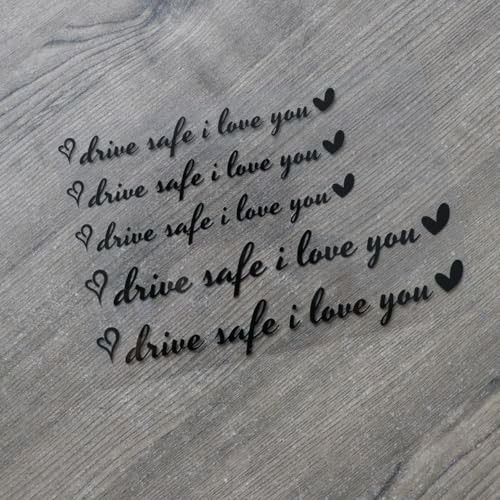 drive safe i love you
drive safe i love you
drive safe i love you
drive safe i love you
drive safe i love you